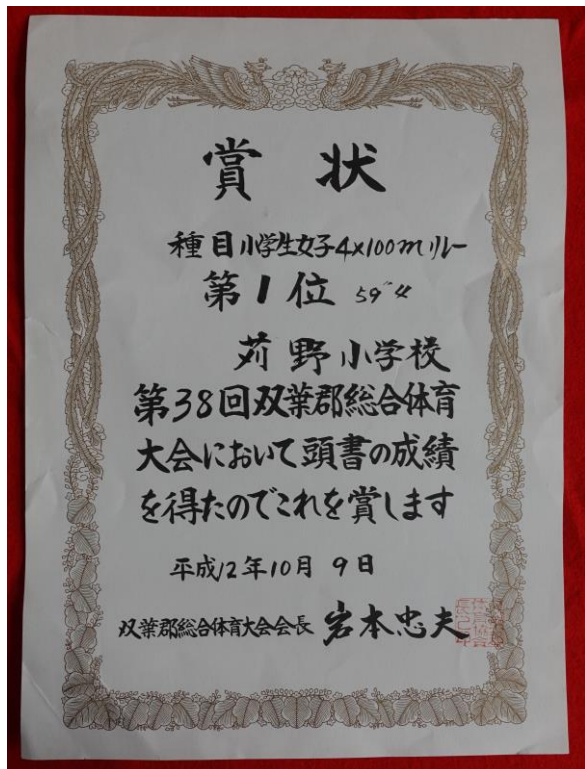 賞状
種目小学生女子4×100mリレー
第1位 59"4
苅野小学校
第38回双葉郡総合体育
大会において頭書の成績
を得たのでこれを賞します
平成12年10月9日
双葉郡総合体育大会会長 岩本忠夫